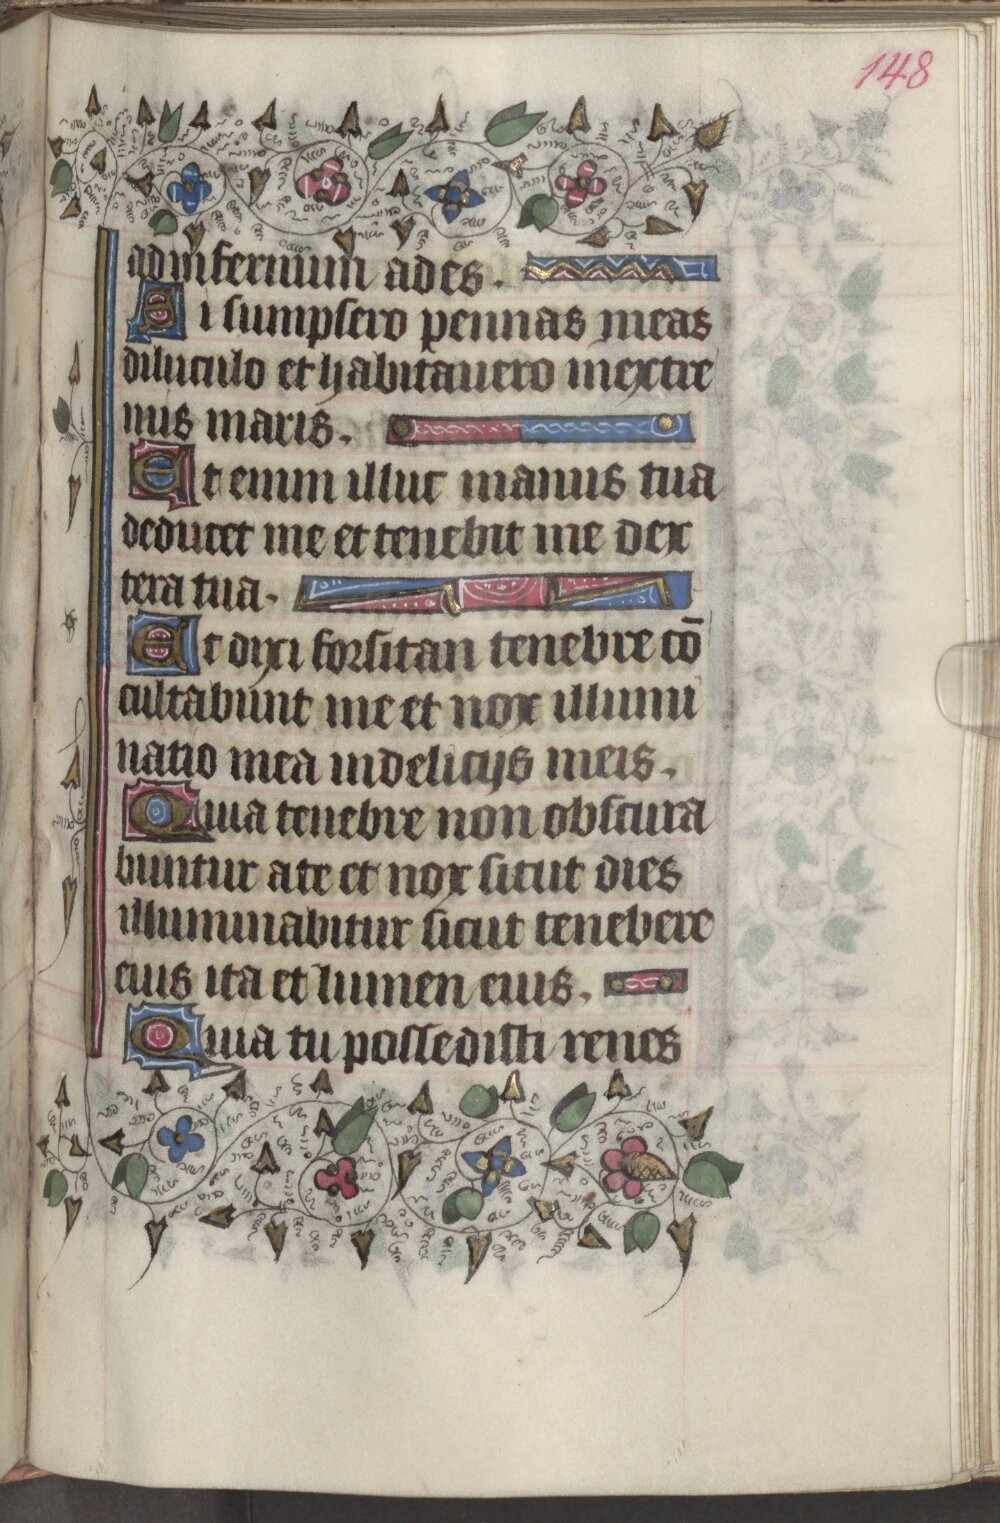 148
ad infernum ades.
Si sumpsero pennas meas
diluculo et habitauero in extre
mis maris.
Et enim illuc manus tua
deducet me et tenebit me dex
tera tua.
Et dixi forsitan tenebre cō
cultabunt me et nox illumi
natio mea in delicijs meis.
Quia tenebre non obscura
buntur a te et nox sicut dies
illuminabitur sicut tenebere
eius ita et lumen eius.
Quia tu possedisti renes